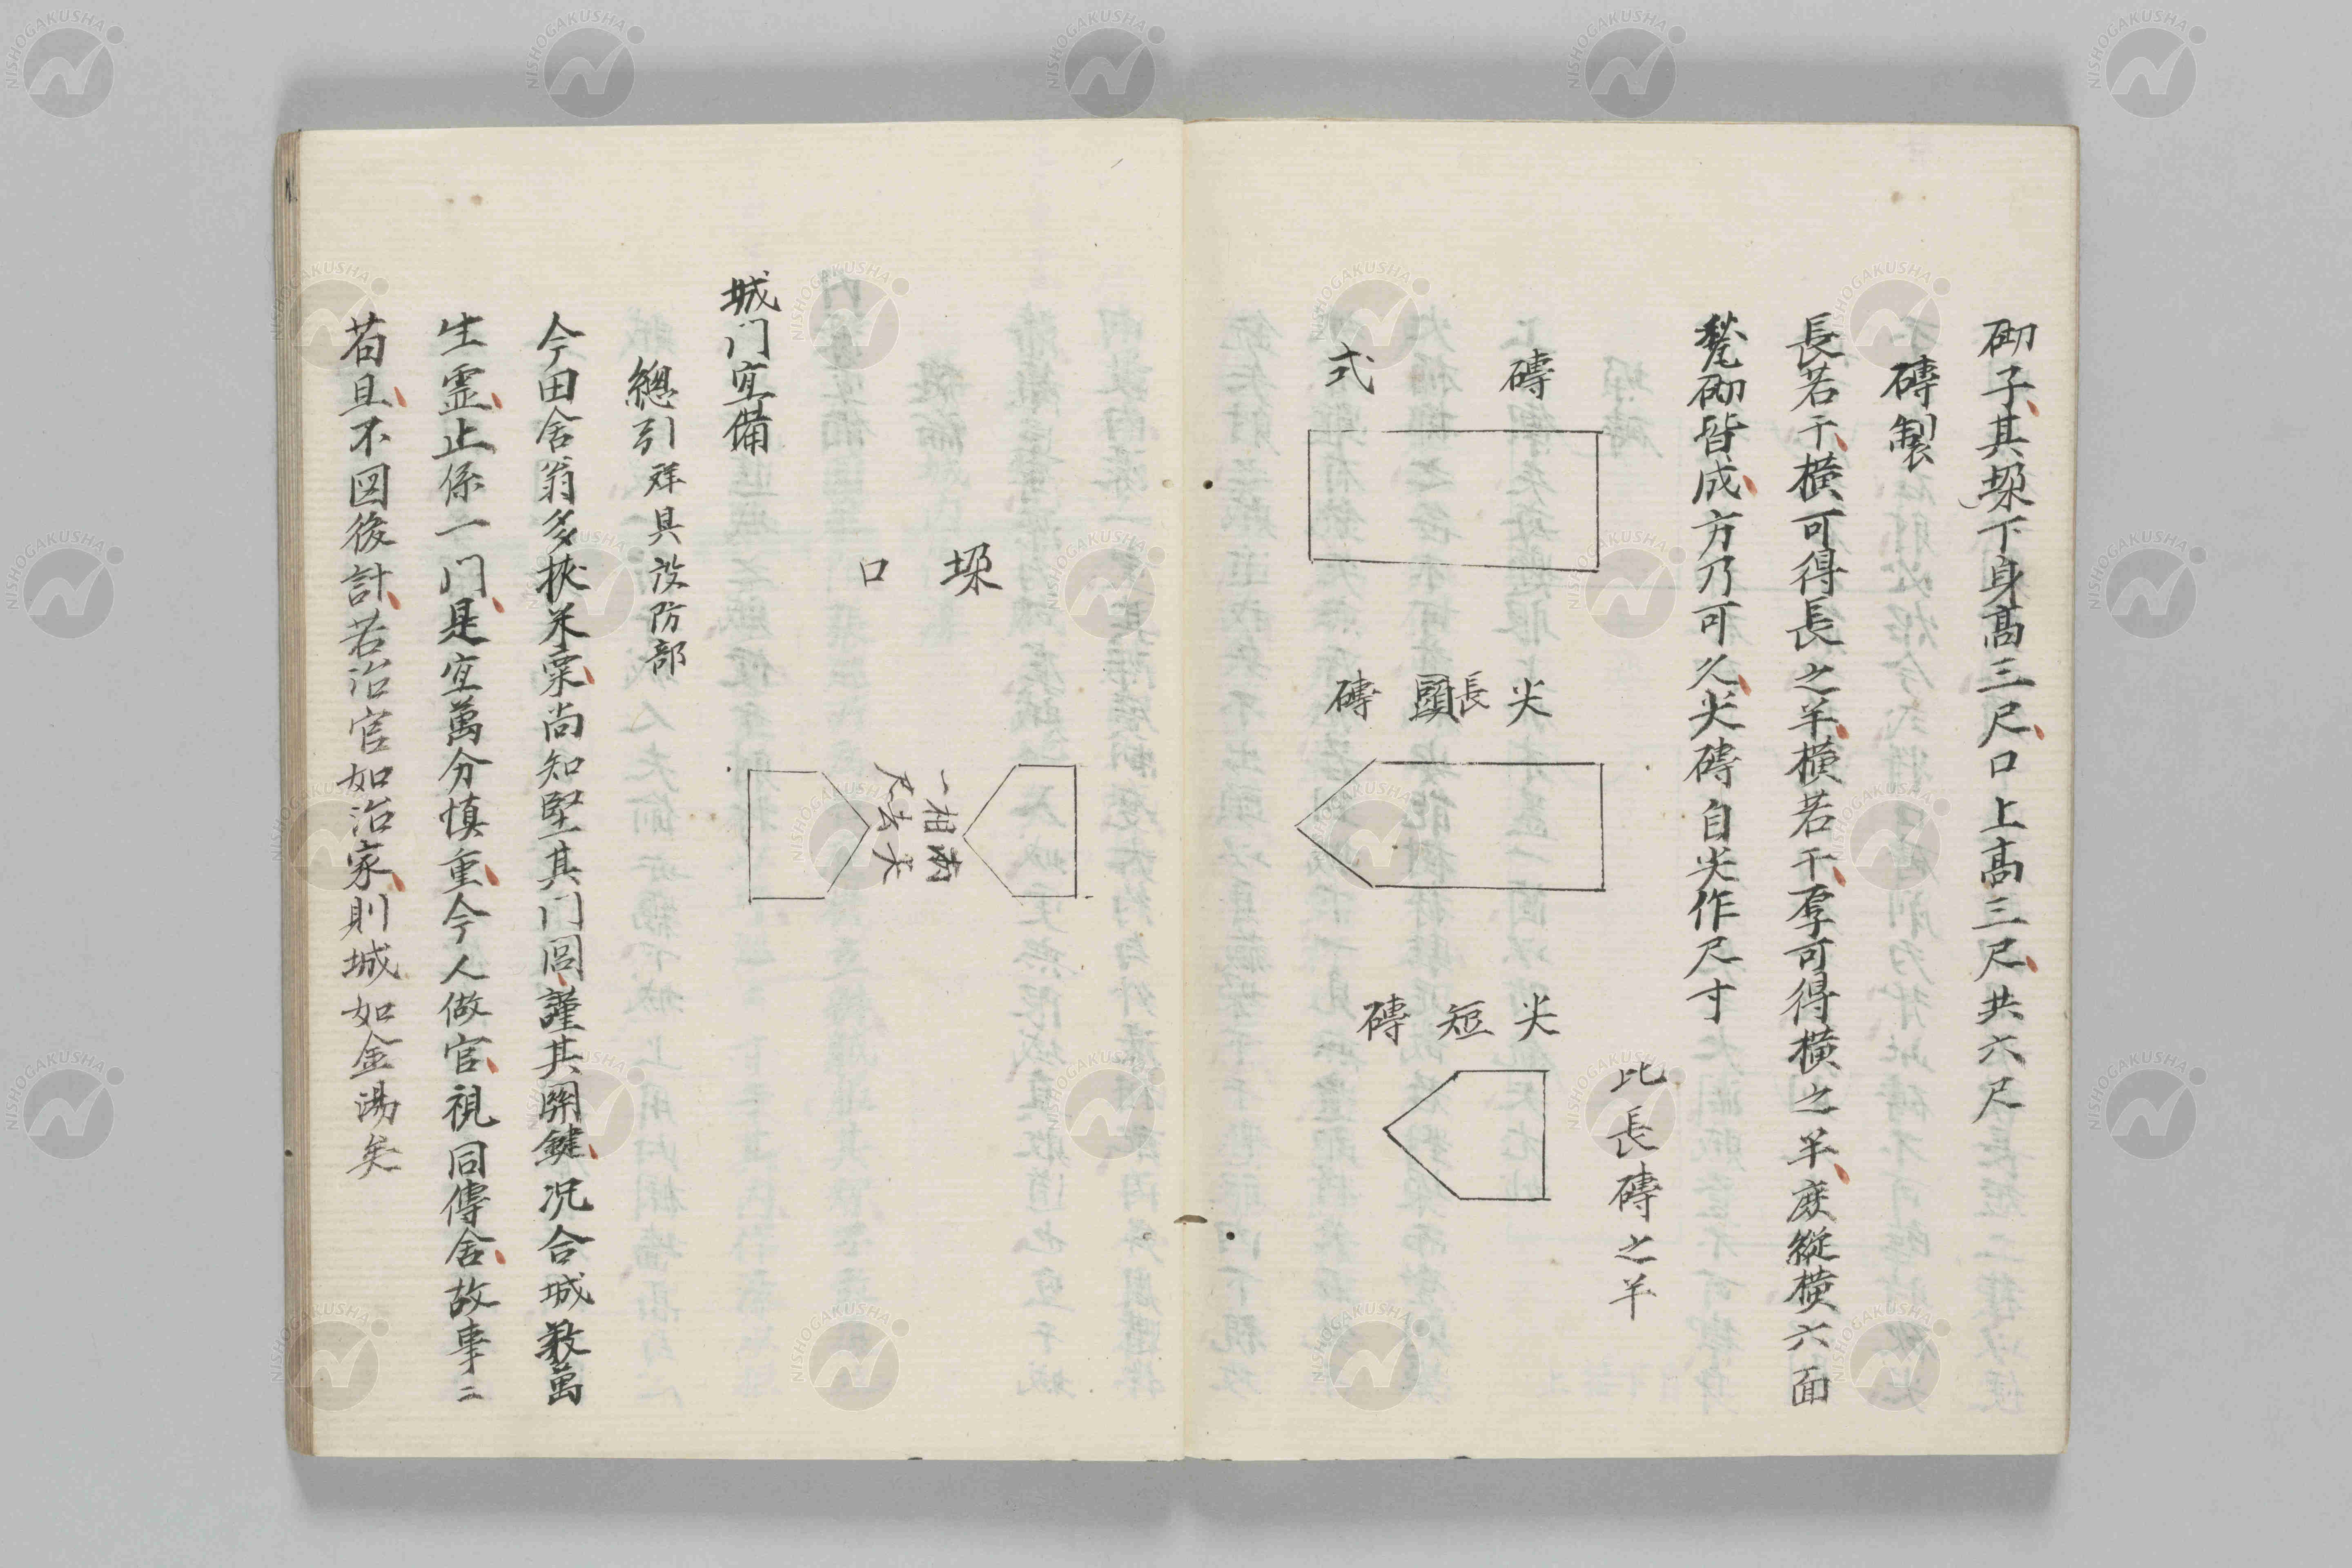 砌子其垜下身高三尺口上高三尺共六尺
磚製
長若干橫可得長之半橫若干厚可得橫之半庶縱橫六面
甃砌皆成方乃可久尖磚自尖作尺寸
磚式
尖長頭磚
尖短磚
比長磚之半
垜口
兩尖相去一尺
城门宜備
總引 詳具設防部
今田舍翁多挾米粟尚知堅其门閭謹其関鍵况合城数萬
生霊止係一门是宜萬分慎重今人做官視同傳舍故事二
苟且不図後計若治官如治家則城如金湯矣
NISHOGAKUSHA